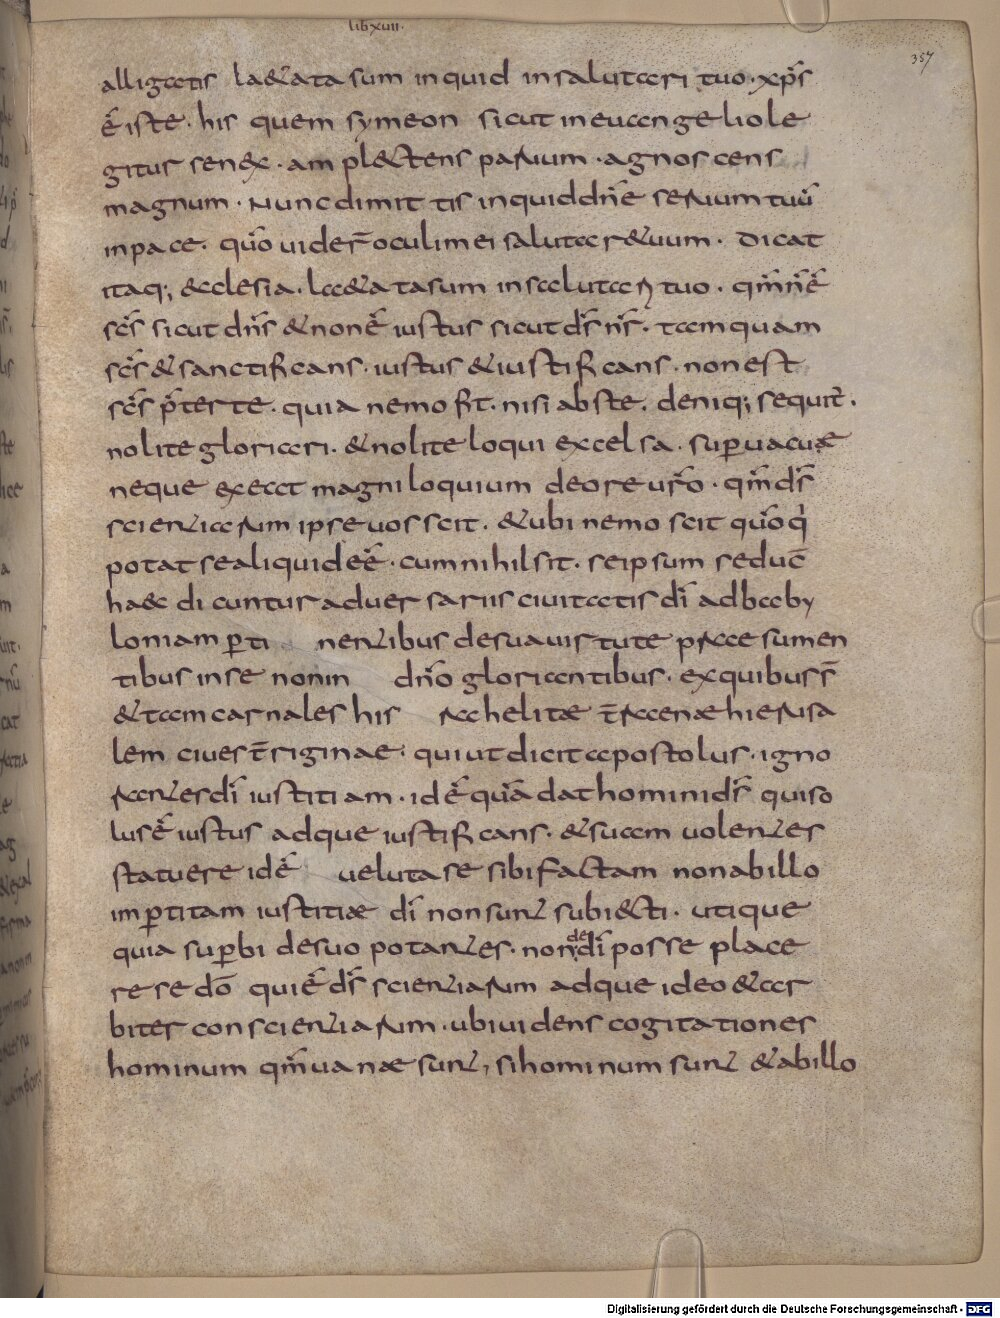 lib xvii.
357
alligatis laetata sum inquid in salutari tuo. xp̅s
e̅ iste. his quem symeon sicut in euangelio le
gitur senex. amplectens paruum. agnoscens
magnum. Nunc dimittis inquid dn̅e seruum tuu̅
in pace. qm̅o uider̅ oculi mei salutare tuum. Dicat
itaq; ecclesia. laetata sum in salutari tuo. qm̅ n̅ e̅
sc̅s sicut dn̅s & non e̅ iustus sicut ds̅ nr̅. tamquam
sc̅s & sanctificans. iustus & iustificans. non est
sc̅s p̅ter te. quia nemo fit. nisi abs te. deniq; sequit̅.
nolite gloriari. & nolite loqui excelsa. superuacuae
neque exeat magniloquium de ore uro̅. qm̅ ds̅
scientiarum ipse uos scit. & ubi nemo scit qm̅o qi
potat se aliquid ee̅. cum nihil sit. seipsum seduc̅
haec dicuntur aduersariis ciuitatis di̅ ad baby
loniam perti nentibus de sua uirtute praesumen
tibus in se non in dn̅o gloriantibus. ex quibus s̅
& tam carnales hisrahelitae t̅raenae hierusa
lem ciues t̅riginae. qui ut dicit apostolus. igno
rantes di̅ iustitiam. id e̅ qua̅ dat homini ds̅ qui so
lus e̅ iustus adque iustificans. & suam uolentes
statuere id e̅ uelut a se sibi factam non ab illo
impertitam iustitiae di̅ non sunt subiecti. utique
quia superbi de suo potantes. non de di̅ posse place
re se do̅ qui e̅ ds̅ scientiarum adque ideo & ar
biter conscientiarum. ubi uidens cogitationes
hominum qm̅ uanae sunt, si hominum sunt & ab illo
Digitalisierung gefördert durch die Deutsche Forschungsgemeinschaft - DFG